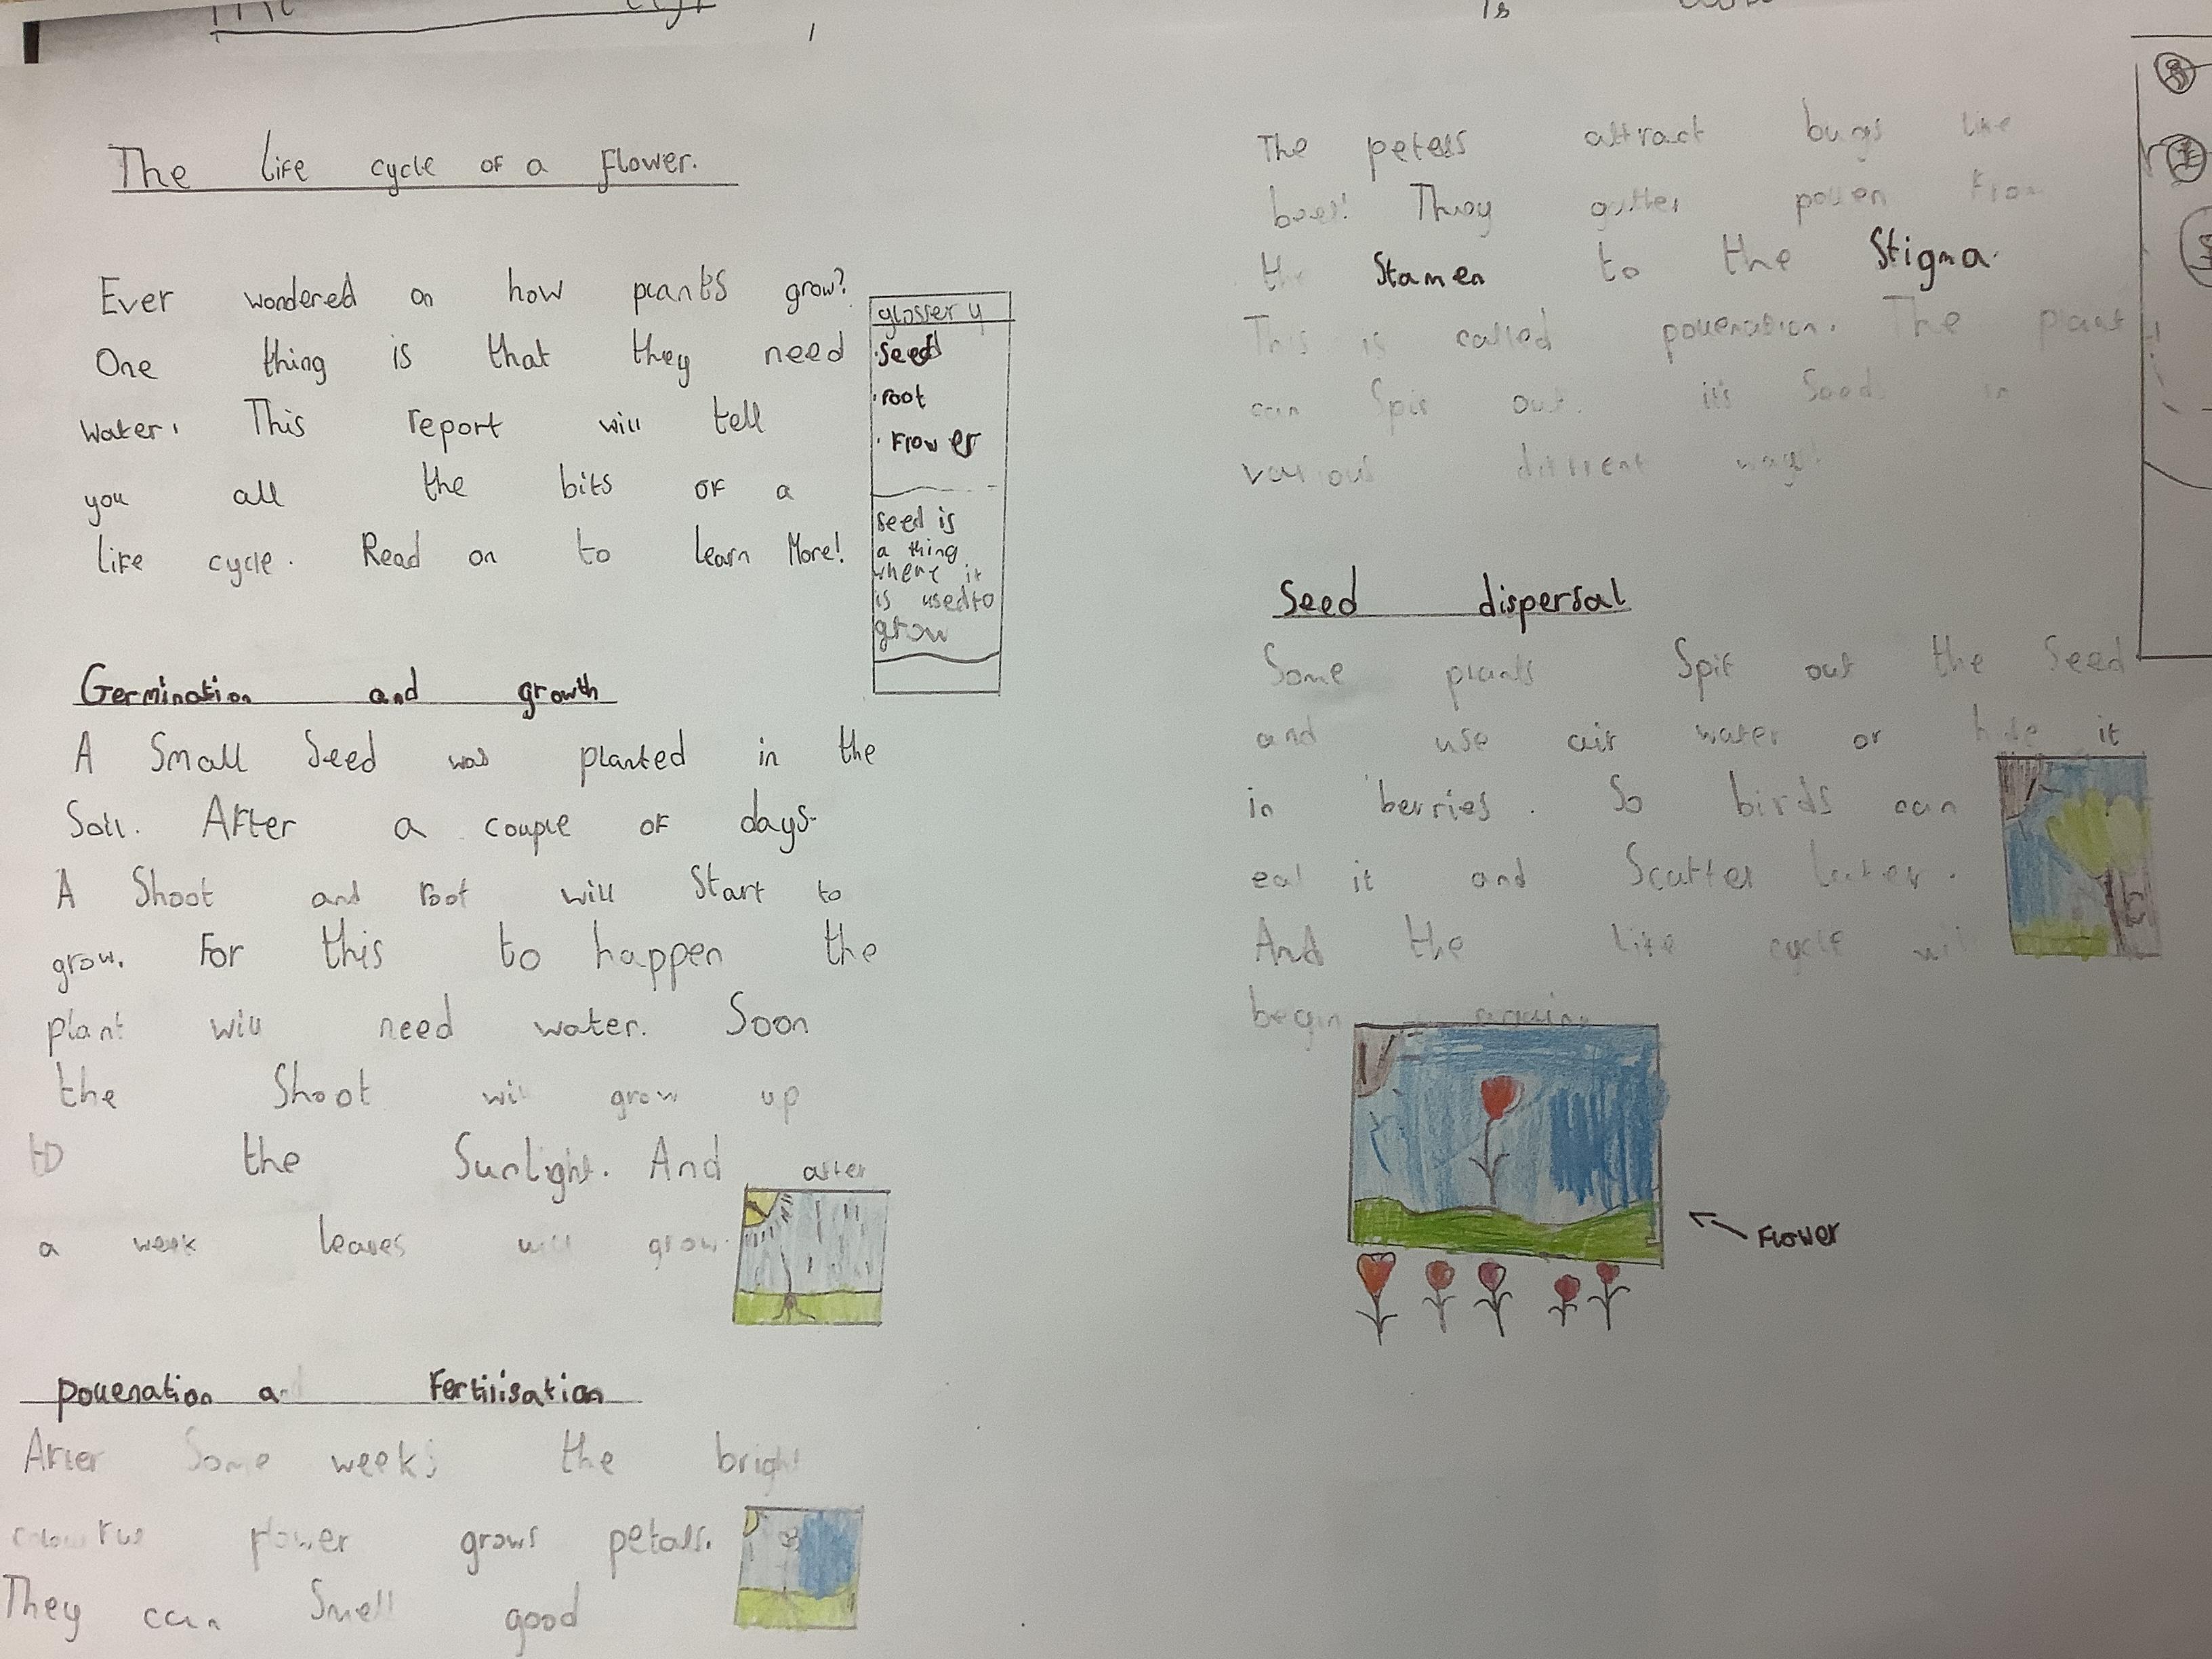 The life cycle of a flower.
Ever wondered on how plants grow?
One thing is that they need
water. This report will tell
you all the bits of a
life cycle. Read on to learn More!
glossery
·seed
·root
·Flower
seed is
a thing
where it
is used to
grow
Germination and growth
A Small Seed was planted in the
Soil. After a couple of days.
A Shoot and root will Start to
grow. For this to happen the
plant will need water. Soon
the Shoot will grow up
to the Sunlight. And after
a week leaves will grow.
pollenation and Fertilisation
After Some weeks the bright
flower grows petals.
They can Smell good
The petels attract bugs like
bees! They gather pollen from
the Stamen to the Stigma.
This is called pollenation. The plant
can Spit out it's Seed in
various different ways!
Seed dispersal
Some plants Spit out the Seed
and use air water or hide it
in berries. So birds can
eat it and Scatter later.
And the life cycle
begin again
Flower